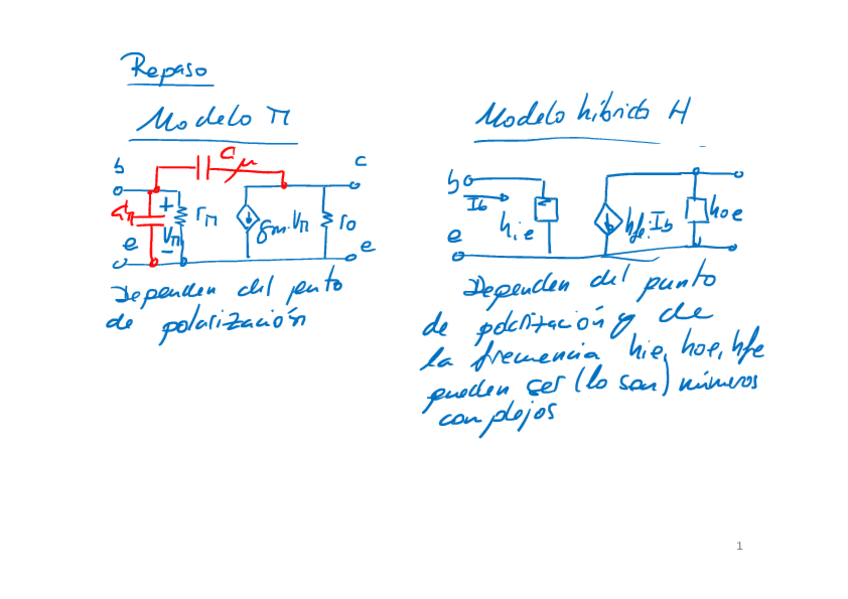 Repaso
Modelo π
b
Cμ
c
Cπ
+
Vπ
-
rπ
gm.Vπ
ro
e
e
Dependen del punto
de polarización
Modelo híbrido H
b
Ib
hie
hfe.Ib
hoe
e
Dependen del punto
de polarización y de
la frecuencia hie, hoe, hfe
pueden ser (lo son) números
complejos
1